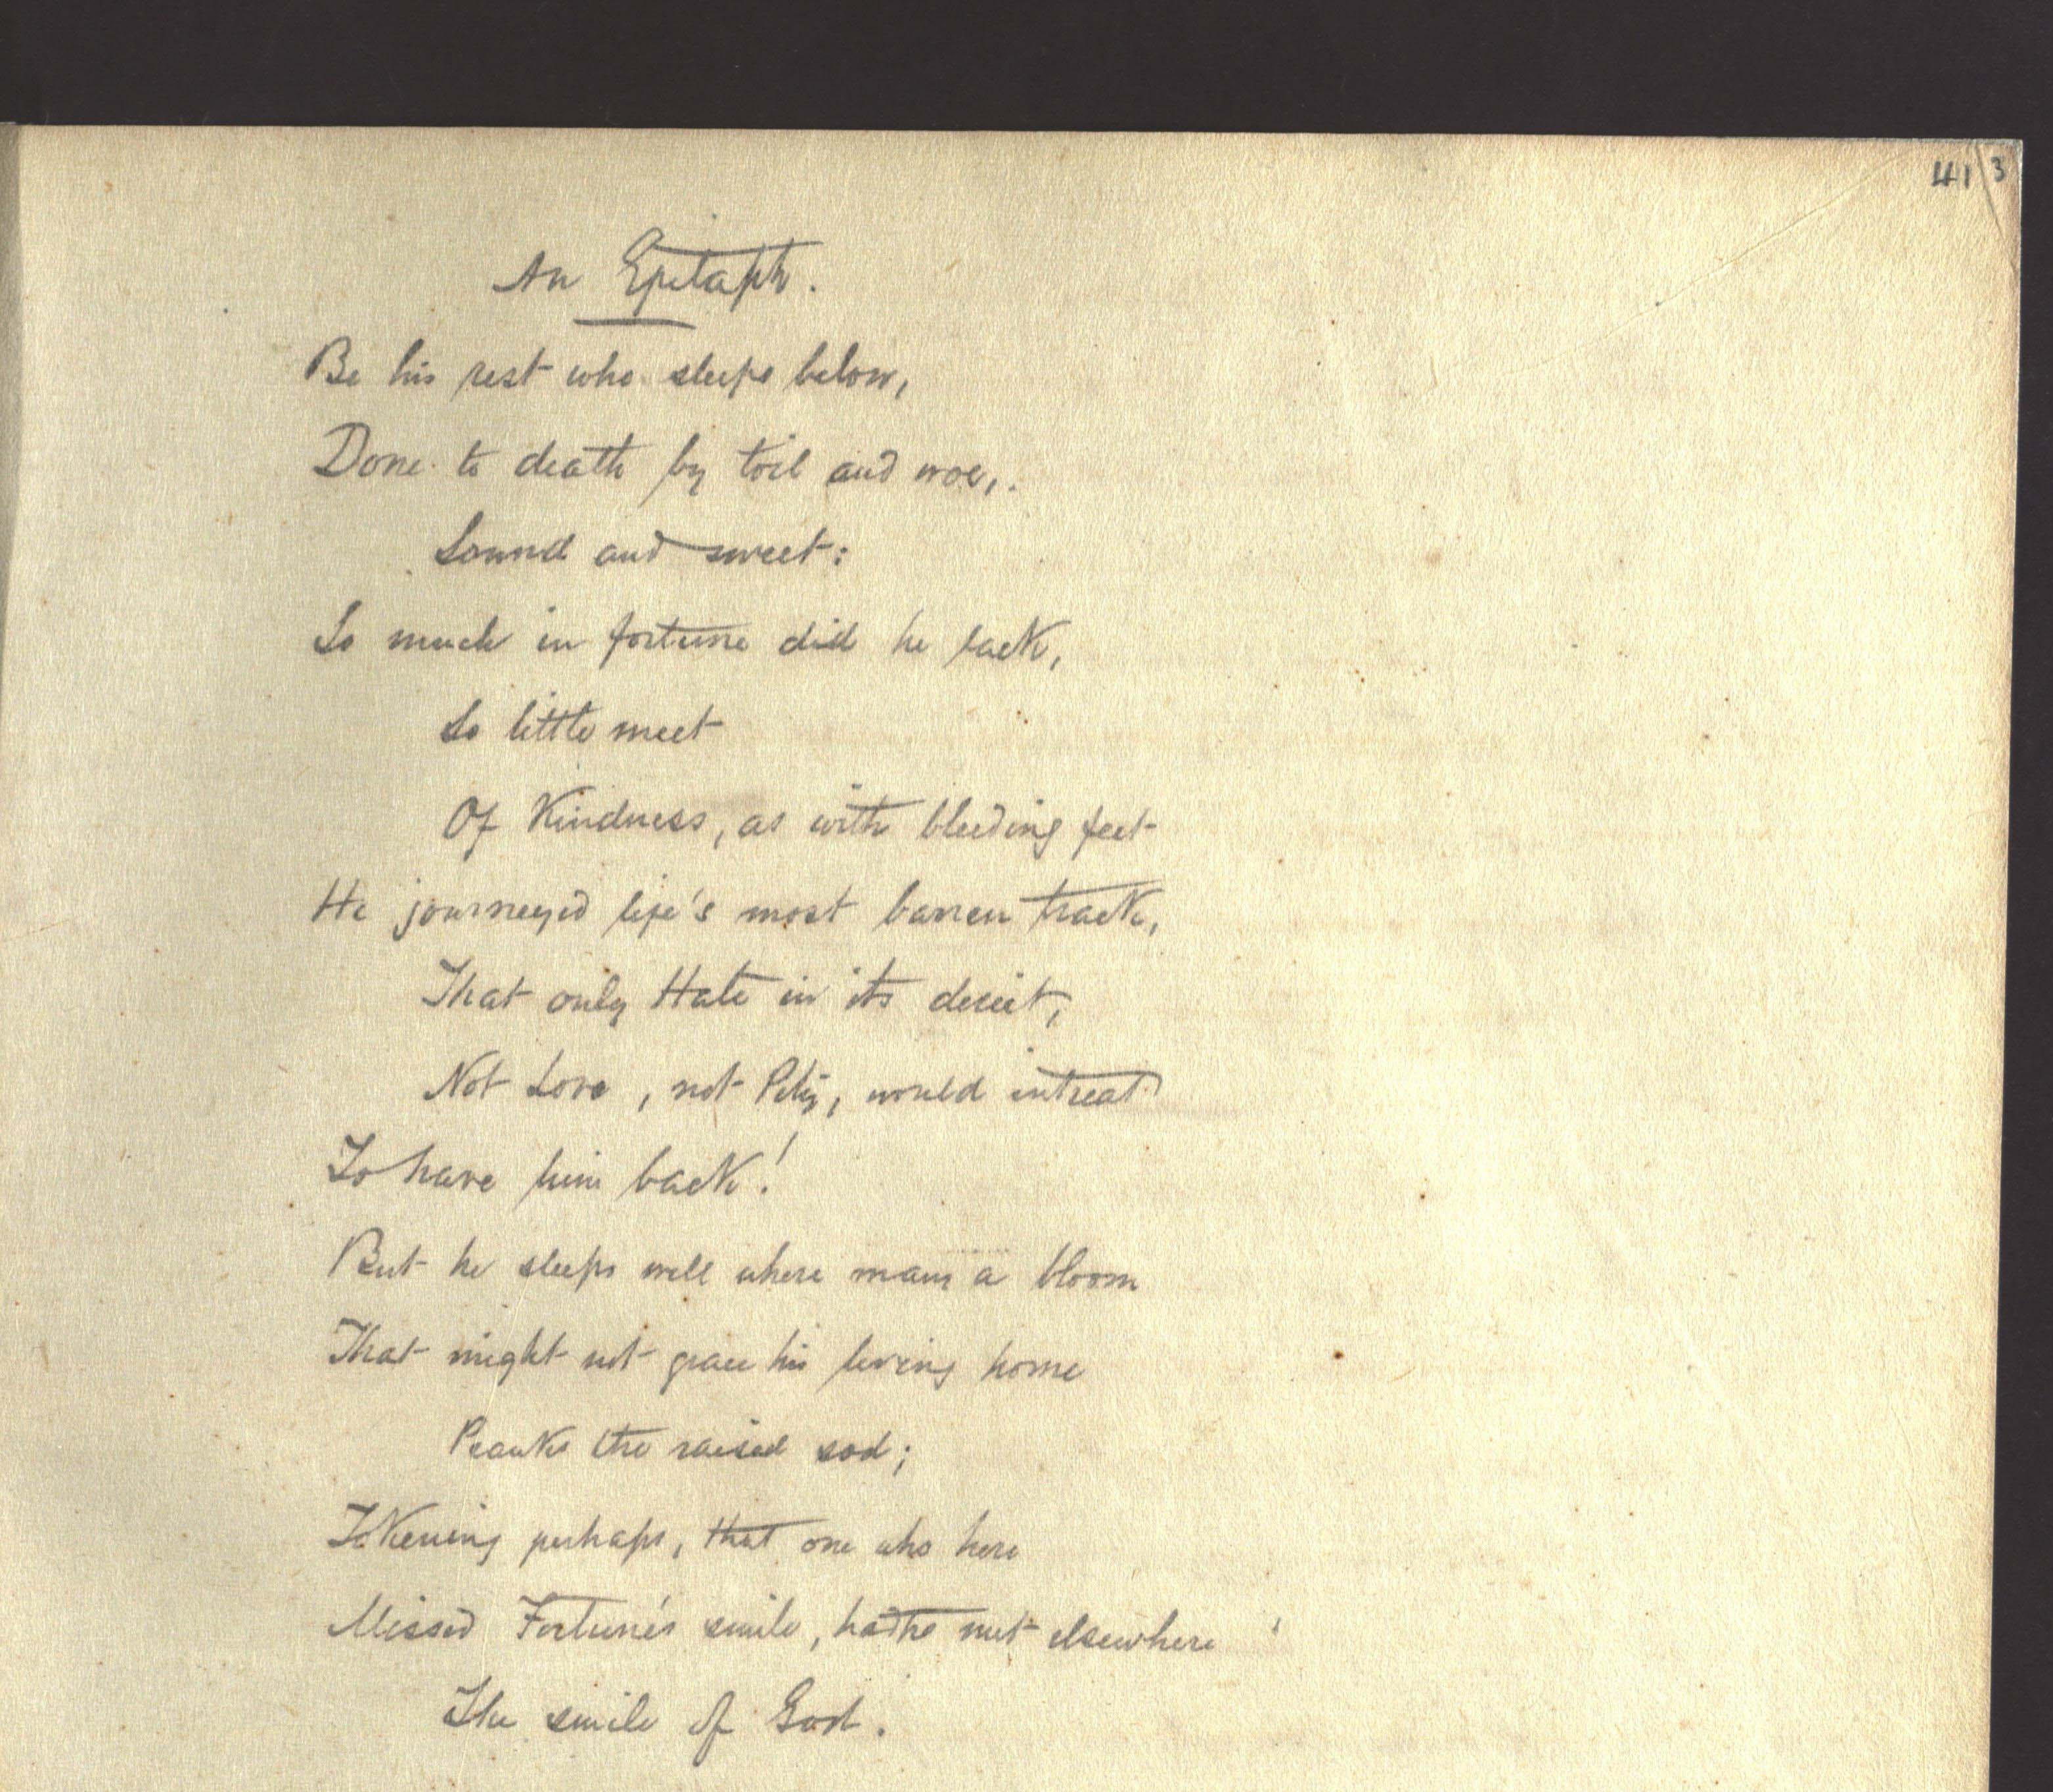 41 3
An Epitaph.
Be his rest who sleeps below,
Done to death by toil and woe,.
Sound and sweet:
So much in fortune did he lack,
So little meet
Of Kindness, as with bleeding feet
He journeyed life's most barren track,
That only Hate in its deceit,
Not Love, not Pity, would intreat
To have him back!
But he sleeps well where many a bloom
That might not grace his living home
Pranks the raised sod;
Tokening perhaps, that one who here
Missed Fortune's smile, hath met elsewhere
The smile of God.